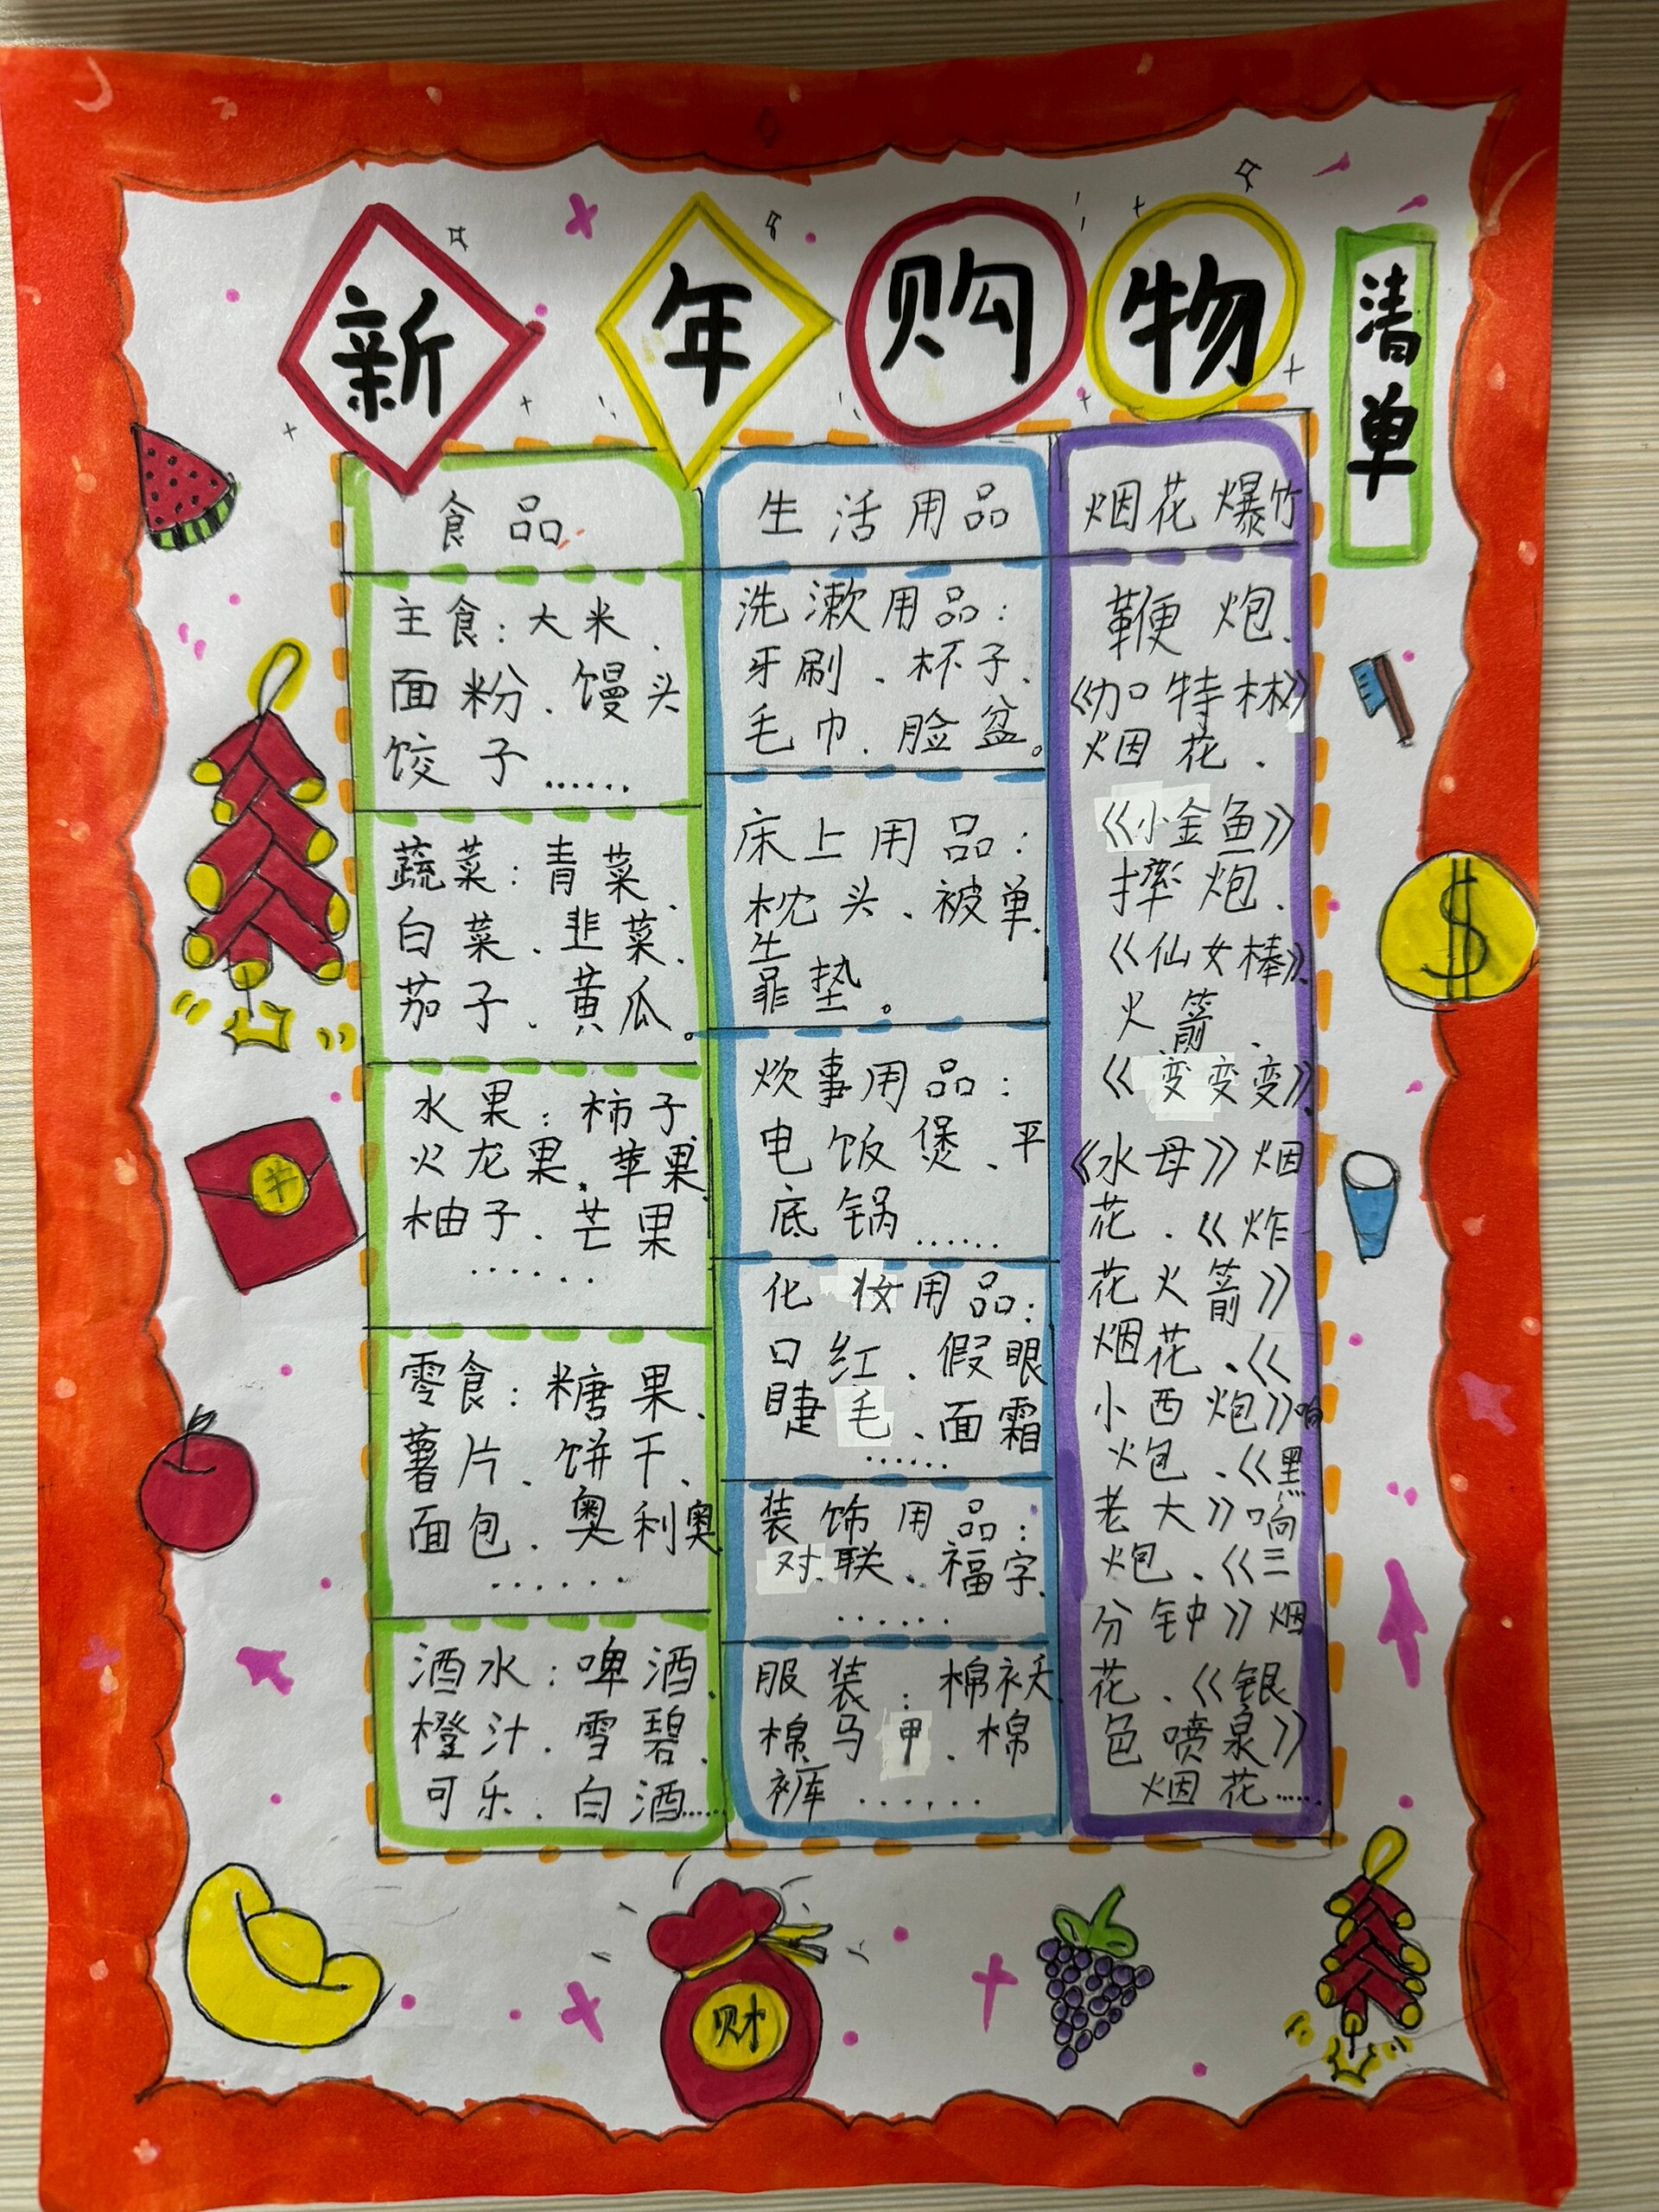 新年购物
清单
食品
主食：大米、
面粉、馒头
饺子……
蔬菜：青菜、
白菜、韭菜、
茄子、黄瓜。
水果：柿子、
火龙果、苹果、
柚子、芒果
……
零食：糖果、
薯片、饼干、
面包、奥利奥
……
酒水：啤酒、
橙汁、雪碧、
可乐、白酒……
生活用品
洗漱用品：
牙刷、杯子、
毛巾、脸盆。
床上用品：
枕头、被单、
靠垫。
炊事用品：
电饭煲、平
底锅……
化妆用品：
口红、假眼
睫毛、面霜
……
装饰用品：
对联、福字、
……
服装：棉袄、
棉马甲、棉
裤……
烟花爆竹
鞭炮、
《加特林》
烟花、
《小金鱼》
摔炮、
《仙女棒》、
火箭、
《变变变》、
《水母》烟
花、《炸
花火箭》
烟花、《
小西炮》响
炮、《黑
老大》响
炮、《三
分钟》烟
花、《银
色喷泉》
烟花……
财